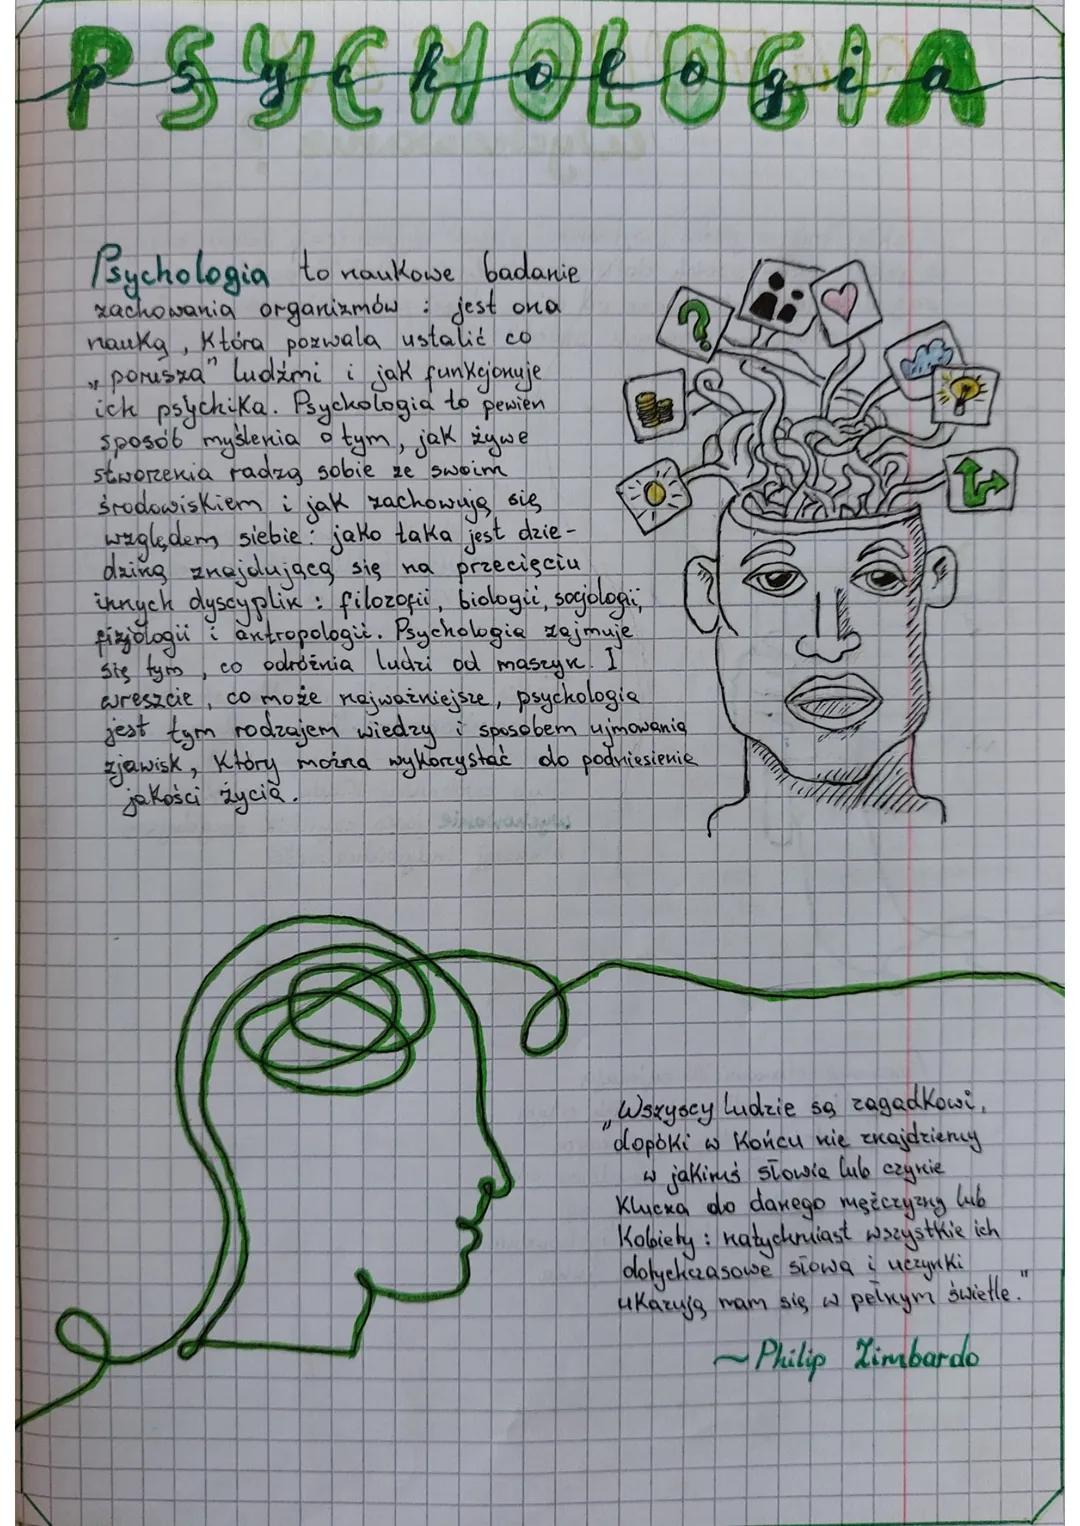 PSYCHOLOGIA
psychologia
Psychologia to naukowe badanie
zachowania organizmów : jest ona
nauką, która pozwala ustalić co
„porusza" ludźmi i jak funkcjonuje
ich psychika. Psychologia to pewien
sposób myślenia o tym, jak żywe
stworzenia radzą sobie ze swoim
środowiskiem i jak zachowują się
względem siebie: jako taka jest dzie-
dziną znajdującą się na przecięciu
innych dyscyplin : filozofii, biologii, socjologii,
fizjologii i antropologii. Psychologia zajmuje
się tym, co odróżnia ludzi od maszyn. I
wreszcie, co może najważniejsze, psychologia
jest tym rodzajem wiedzy i sposobem ujmowania
zjawisk, który można wykorzystać do podniesienie
jakości życia.
„Wszyscy ludzie są zagadkowi,
dopóki w końcu nie znajdziemy
w jakimś słowie lub czynie
klucza do danego mężczyzny lub
kobiety : natychmiast wszystkie ich
dotychczasowe słowa i uczynki
ukazują nam się w pełnym świetle."
~ Philip Zimbardo